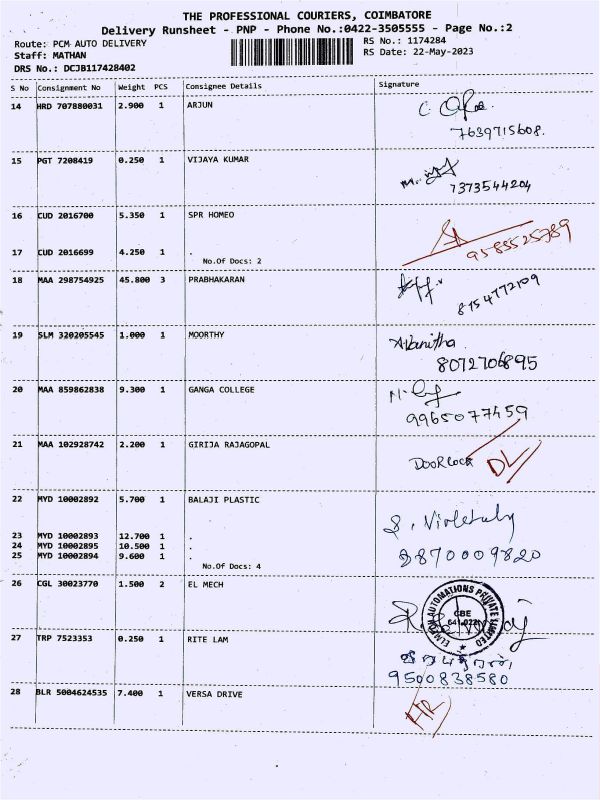 THE PROFESSIONAL COURIERS, COIMBATORE
Delivery Runsheet - PNP - Phone No.:0422-3505555 - Page No.:2
Route: PCM AUTO DELIVERY
RS No.: 1174284
Staff: MATHAN
RS Date: 22-May-2023
DRS No.: DCJB117428402
S No Consignment No Weight PCS Consignee Details Signature
14 HRD 707880031 2.900 1 ARJUN
7639715608.
15 PGT 7208419 0.250 1 VIJAYA KUMAR
7373544204
16 CUD 2016700 5.350 1 SPR HOMEO
9585525789
17 CUD 2016699 4.250 1 .
No.Of Docs: 2
18 MAA 298754925 45.800 3 PRABHAKARAN
8754772109
19 SLM 320205545 1.000 1 MOORTHY
A.Vanitha
8072706895
20 MAA 859862838 9.300 1 GANGA COLLEGE
9965077459
21 MAA 102928742 2.200 1 GIRIJA RAJAGOPAL
DOORLOCK DL
22 MYD 10002892 5.700 1 BALAJI PLASTIC
23 MYD 10002893 12.700 1 .
24 MYD 10002895 10.500 1 .
25 MYD 10002894 9.600 1 .
8870009820
No.Of Docs: 4
26 CGL 30023770 1.500 2 EL MECH
AUTOMATIONS PRIVATE LIMITED
CBE
27 TRP 7523353 0.250 1 RITE LAM
9500838580
28 BLR 5004624535 7.400 1 VERSA DRIVE